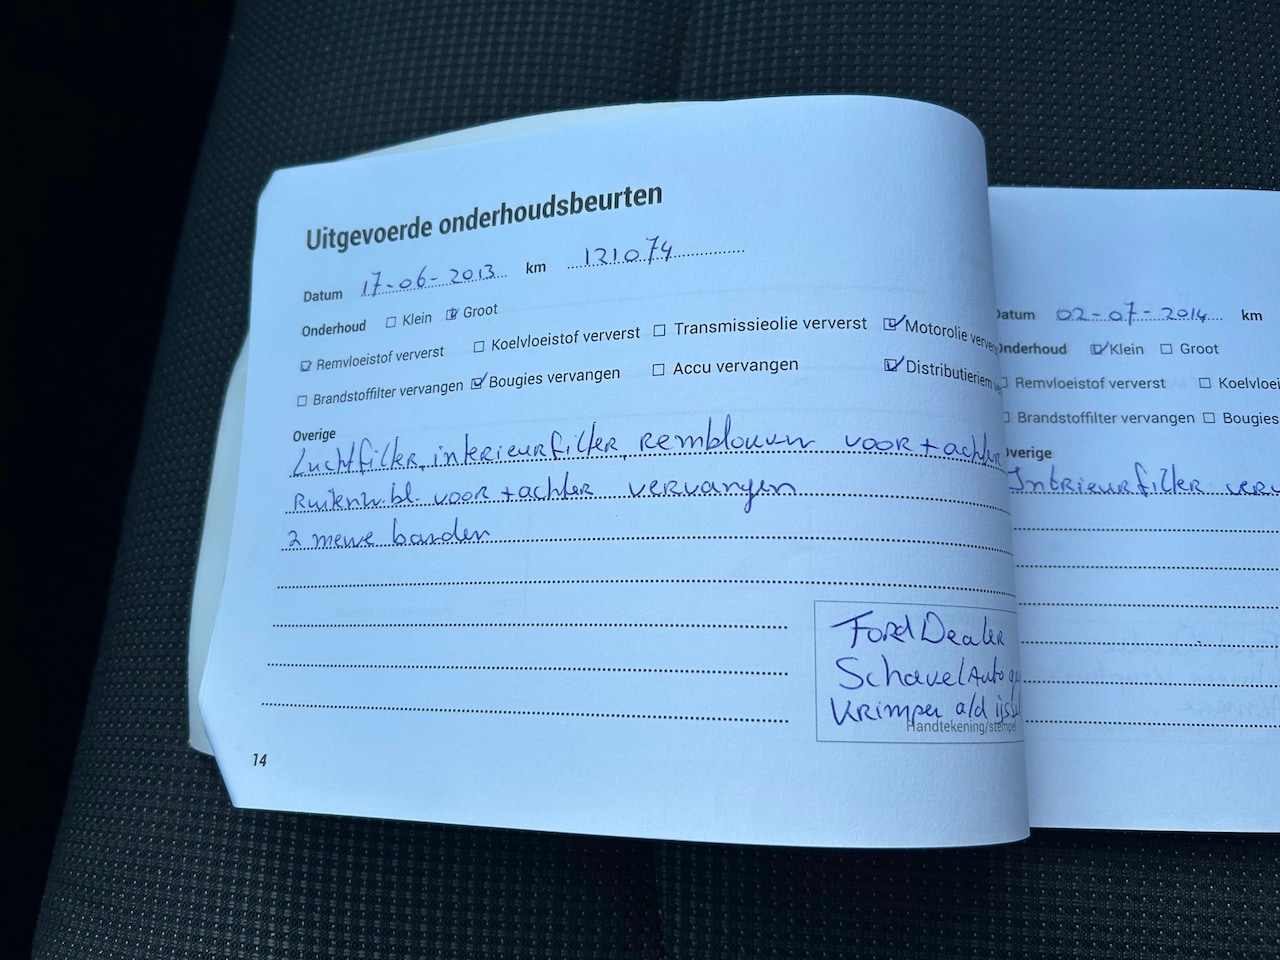 Uitgevoerde onderhoudsbeurten
Datum 17-06-2013 km 121074
Onderhoud Klein Groot
Remvloeistof ververst Koelvloeistof ververst Transmissieolie ververst Motorolie verve
Brandstoffilter vervangen Bougies vervangen Accu vervangen Distributieriem
Overige
Luchtfilter, interieurfilter, Remblokken voor + achter
Ruitenw.bl. voor + achter vervangen
2 nieuwe banden
Ford Dealer
Schavel Auto
Krimpen a/d ijssel
Handtekening/stempel
14
Datum 02-07-2014 km
Onderhoud Klein Groot
Remvloeistof ververst Koelvloei
Brandstoffilter vervangen Bougies
Overige
Interieurfilter verv